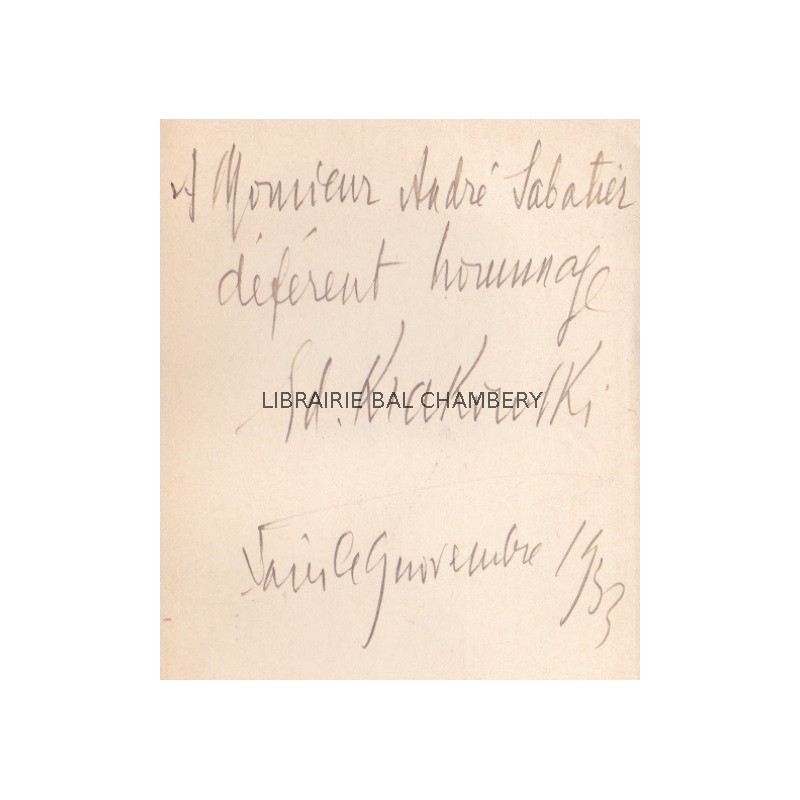 A Monsieur André Sabatier
déférent hommage
Ed. Krakowski
LIBRAIRIE BAL CHAMBERY
Paris le 9 novembre 1933